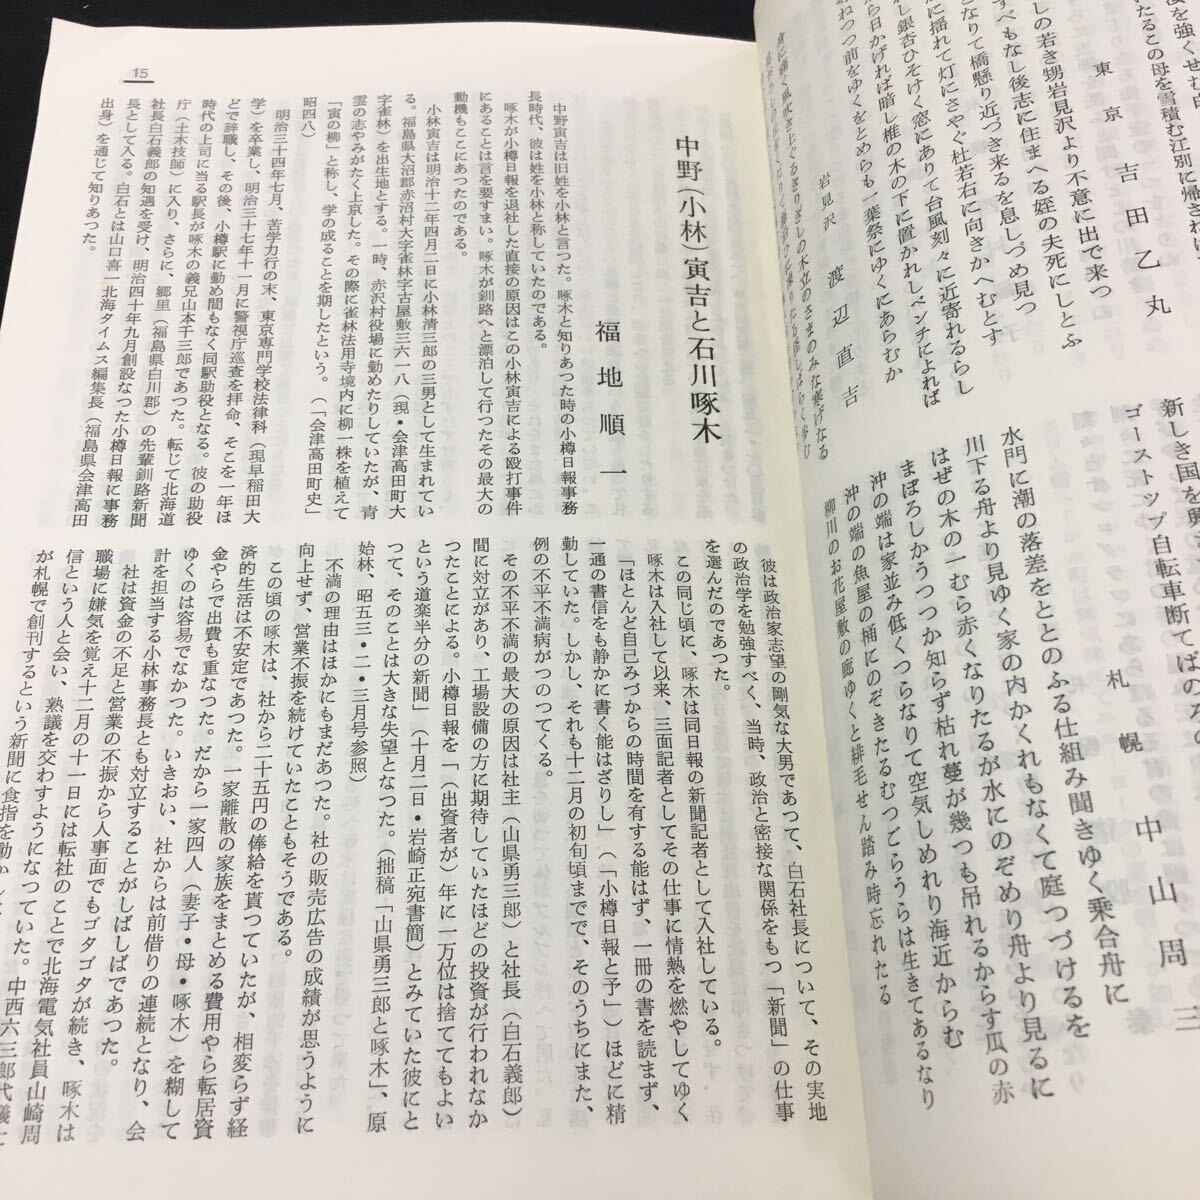 たるこの母を雪積む江別に帰さねば
東京 吉田乙丸
しの若き甥岩見沢より不意に出で来つ
すべもなし後志に住まへる姪の夫死にしとふ
となりて橋懸り近づき来るを息しづめ見つ
に揺れて灯にさやぐ杜若右に向きかへむとす
し銀杏ひそけく窓にありて台風刻々に近寄れるらし
ら日かげれば暗し椎の木の下に置かれしベンチによれば
ねつつ前をゆくをとめらも一葉祭にゆくにあらむか
岩見沢 渡辺直吉
新しき国を興
ゴーストップ自転車断てばのろの
札幌 中山周三
水門に潮の落差をととのふる仕組み聞きゆく乗合舟に
川下る舟より見ゆく家の内かくれもなくて庭つづけるを
はぜの木の一むら赤くなりたるが水にのぞめり舟より見るに
まぼろしかうつつか知らず枯れ蔓が幾つも吊れるからす瓜の赤
沖の端は家並み低くつらなりて空気しめれり海近からむ
沖の端の魚屋の桶にのぞきたるむつごらうらは生きてあるなり
柳川のお花屋敷の廊ゆくと緋毛せん踏み時忘れたる
15
中野(小林)寅吉と石川啄木
福地順一
中野寅吉は旧姓を小林と言つた。啄木と知りあつた時の小樽日報事務
長時代、彼は姓を小林と称していたのである。
啄木が小樽日報を退社した直接の原因はこの小林寅吉による殴打事件
にあることは言を要すまい。啄木が釧路へと漂泊して行つたその最大の
動機もここにあつたのである。
小林寅吉は明治十二年四月二日に小林清三郎の三男として生まれてい
る。福島県大沼郡赤沼村大字雀林字古屋敷三六一八(現・会津高田町大
字雀林)を出生地とする。一時、赤沢村役場に勤めたりしていたが、青
雲の志やみがたく上京した。その際に雀林法用寺境内に柳一株を植えて
「寅の柳」と称し、学の成ることを期したという。(「会津高田町史」
昭四八)
明治三十四年七月、苦学力行の末、東京専門学校法律科(現早稲田大
学)を卒業し、明治三十七年十一月に警視庁巡査を拝命、そこを一年ほ
どで辞職し、その後、小樽駅に勤め間もなく同駅助役となる。彼の助役
時代の上司に当る駅長が啄木の義兄山本千三郎であつた。転じて北海道
庁(土木技師)に入り、さらに、郷里(福島県白川郡)の先輩釧路新聞
社長白石義郎の知遇を受け、明治四十年九月創設なつた小樽日報に事務
長として入る。白石とは山口喜一北海タイムス編集長(福島県会津高田
出身)を通じて知りあつた。
彼は政治家志望の剛気な大男であつて、白石社長について、その実地
の政治学を勉強すべく、当時、政治と密接な関係をもつ「新聞」の仕事
を選んだのであつた。
この同じ頃に、啄木は同日報の新聞記者として入社している。
啄木は入社して以来、三面記者としてその仕事に情熱を燃やしてゆく
「ほとんど自己みづからの時間を有する能はず、一冊の書を読まず、
一通の書信をも静かに書く能はざりし」(「小樽日報と予」)ほどに精
勤していた。しかし、それも十二月の初旬頃までで、そのうちにまた、
例の不平不満病がつのつてくる。
その不平不満の最大の原因は社主(山県勇三郎)と社長(白石義郎)
間に対立があり、工場設備の方に期待していたほどの投資が行われなか
つたことによる。小樽日報を「(出資者が)年に一万位は捨ててもよい
という道楽半分の新聞」(十月二日・岩崎正宛書簡)とみていた彼にと
つて、そのことは大きな失望となつた。(拙稿「山県勇三郎と啄木」、原
始林、昭五三・二・三月号参照)
不満の理由はほかにもまだあつた。社の販売広告の成績が思うように
向上せず、営業不振を続けていたこともそうである。
この頃の啄木は、社から二十五円の俸給を貰つていたが、相変らず経
済的生活は不安定であつた。一家離散の家族をまとめる費用やら転居資
金やらで出費も重なつた。だから一家四人(妻子・母・啄木)を糊して
ゆくのは容易でなかつた。いきおい、社からは前借りの連続となり、会
計を担当する小林事務長とも対立することがしばしばであつた。
社は資金の不足と営業の不振から人事面でもゴタゴタが続き、啄木は
職場に嫌気を覚え十二月の十一日には転社のことで北海電気社員山崎周
信という人と会い、熟議を交わすようになつていた。中西六三郎代議士
が札幌で創刊するという新聞に食指を動かし